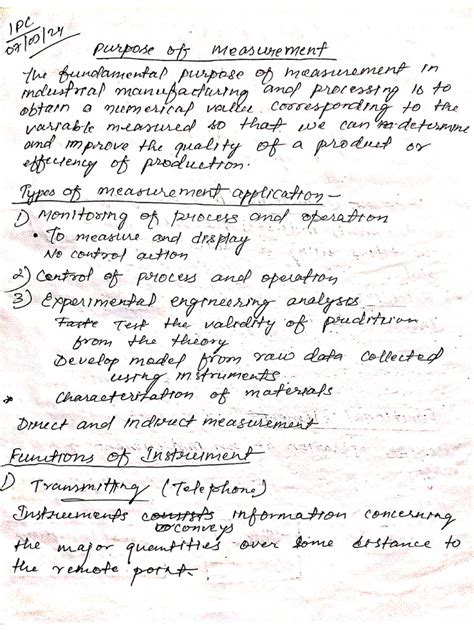 IPC
07/09/24
Purpose of measurement
The fundamental purpose of measurement in
industrial manufacturing and processing is to
obtain a numerical value corresponding to the
variable measured so that we can determine
and improve the quality of a product or
efficiency of production.
Types of measurement application -
1) Monitoring of process and operation
• To measure and display
No control action
2) Control of process and operation
3) Experimental engineering analysis
Taste Test the validity of prediction
from the theory
Develop model from raw data collected
using instruments
Characterization of materials
Direct and indirect measurement
Functions of Instrument
1) Transmitting (Telephone)
Instruments consists information concerning
conveys
the major quantities over some distance to
the remote point.